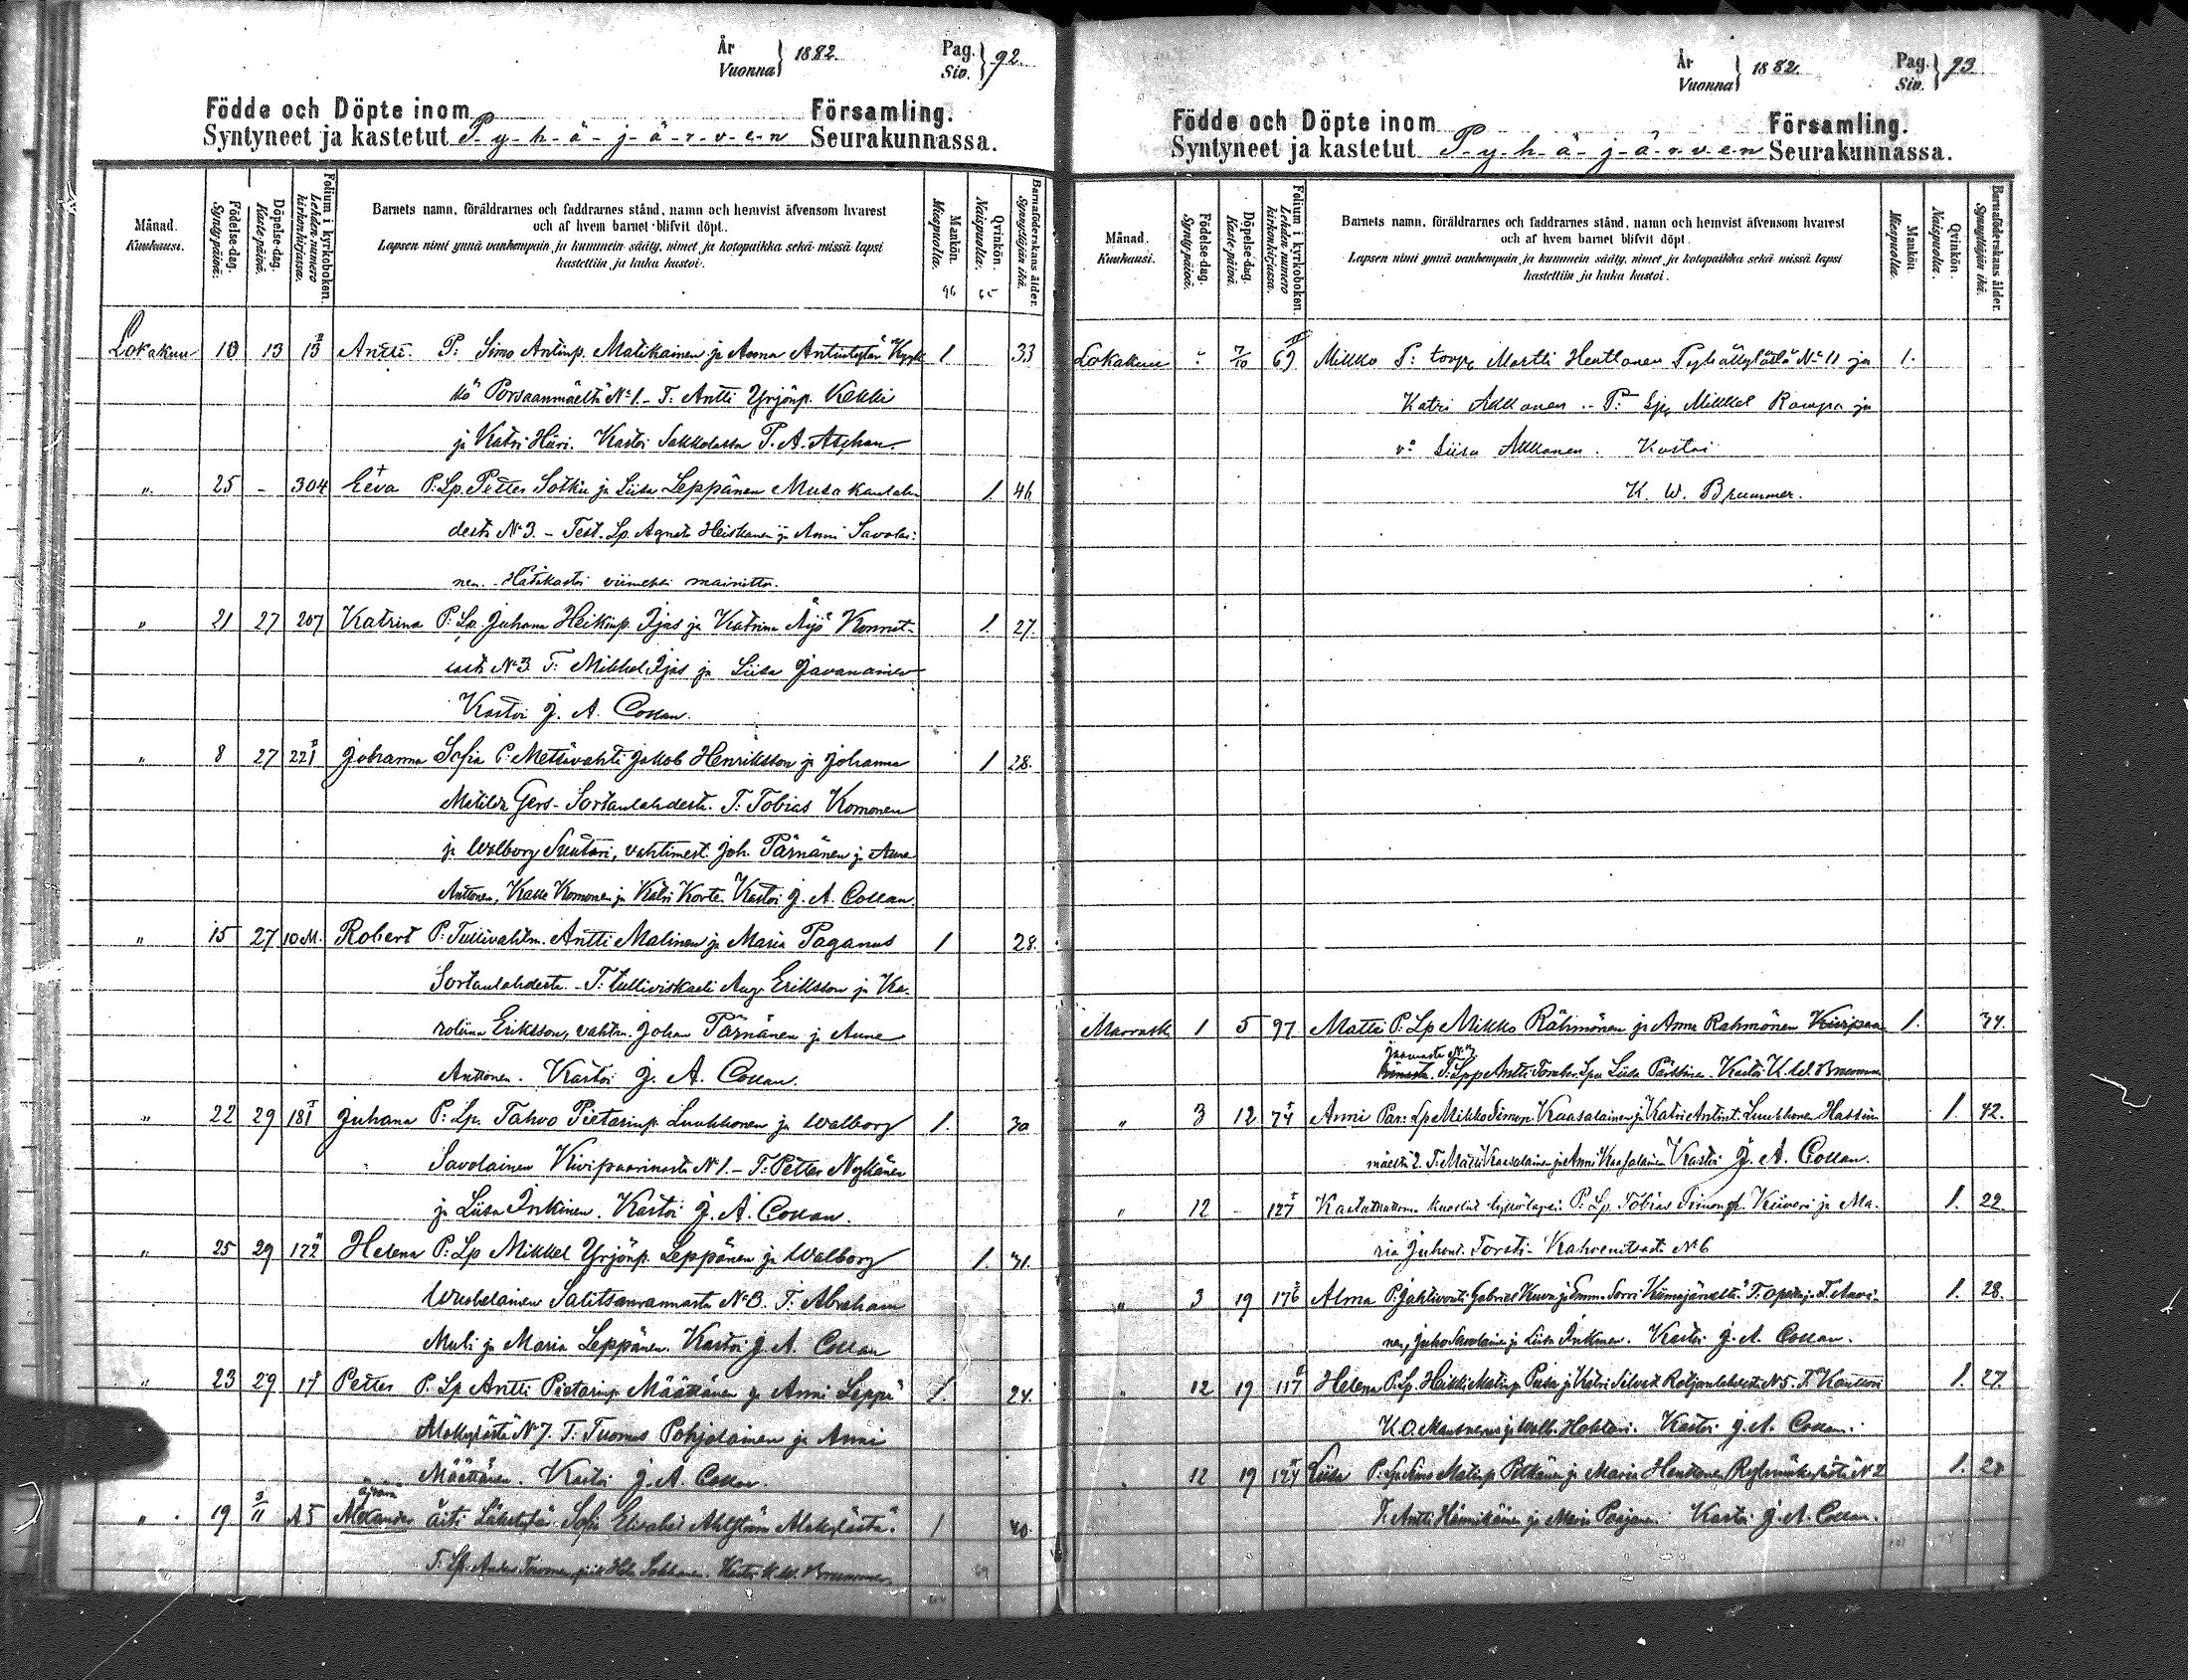 År
Vuonna } 1882.
Pag.
Siv. } 92.
Födde och Döpte inom Församling.
Syntyneet ja kastetut P-y-h-ä-j-ä-r-v-e-n Seurakunnassa.
Månad.
Kuukausi.
Födelse-dag.
Syntypäivä.
Döpelse-dag.
Kaste-päivä.
Folium i kyrkoboken.
Lehden numero kirkonkirjassa.
Barnets namn, föräldrarnes och faddrarnes stånd, namn och hemvist äfvensom hvarest
och af hvem barnet blifvit döpt.
Lapsen nimi ynnä vanhempain ja kummein sääty, nimet ja kotopaikka sekä missä lapsi
kastettiin ja kuka kastoi.
Mankön.
Miespuolia.
Qvinkön.
Naispuolia.
Barnaföderskans ålder.
Synnyttäjän ikä.
96 65
Lokakuu 10 13 13 Antti. P: Simo Antinp. Matikainen ja Anna Antintytär 1 33
Porsaanmäeltä No 1. - T: Antti Yrjönp. Kekki
ja Katri Hiiri. Kastoi Sakkolassa
" 25 - 304 Eeva P: Lp. Petter Sotkia ja Liisa Leppänen Musakantalah- 1 46
desta No 3. - Test. Lp. Agneta Heiskanen ja Anni Savolai-
nen. - Hätäkastoi viimeksi mainittu.
" 21 27 207 Katrina P: Lp. Juhana Heikinp. Ijas ja Katrina Äijö Konnit- 1. 27.
sasta No 3. T: Mikkel Ijas ja Liisa Javanainen
Kastoi J. A. Collan.
" 8 27 221 Johanna Sofia P: Metsävahti Jakob Henriksson ja Johanna 1 28.
Matilda Gers - Sortanlahdesta. T: Tobias Komonen
ja Walborg Suutari, vahtimest. Joh. Pärnänen ja Anna
Anttonen, Kalle Komonen ja Katri Korte. Kastoi J. A. Collan.
" 15 27 10 M. Robert P: Tullivahtm. Antti Malinen ja Maria Paganus 1 28.
Sortanlahdesta. - T: tulliviskaali Aug. Eriksson ja Ka-
rolina Eriksson, vahtm. Johan Pärnänen ja Anna
Anttonen. Kastoi J. A. Collan.
" 22 29 181 Juhana P: Lp. Tahvo Pietarinp. Luukkonen ja Walborg 1. 30
Savolainen Kivipaarinasta No 1. - T: Petter Nykänen
ja Liisa Inkinen. Kastoi J. A. Collan.
" 25 29 172 Helena P: Lp Mikkel Yrjönp. Leppänen ja Walborg 1. 41.
Salitsanrannasta No 3. T: Abraham
Muli ja Maria Leppänen. Kastoi J. A. Collan
" 23 29 Petter P. Lp Antti Pietarinp Määttänen ja Anni Leppä 1. 24.
Alakylästä No 7. T: Tuomas Pohjolainen ja Anni
Määttänen. Kastoi J. A. Collan.
äpärä
" 19 3/11 A5 Alexander äiti Sofia Elisabet Ahlström Alakylästä. 1 40.
Kastoi K. W. Brummer.
69
År
Vuonna } 1882.
Pag.
Siv. } 93
Födde och Döpte inom Församling.
Syntyneet ja kastetut P-y-h-ä-j-ä-r-v-e-n Seurakunnassa.
Månad.
Kuukausi.
Födelse-dag.
Syntypäivä.
Döpelse-dag.
Kaste-päivä.
Folium i kyrkoboken.
Lehden numero kirkonkirjassa.
Barnets namn, föräldrarnes och faddrarnes stånd, namn och hemvist äfvensom hvarest
och af hvem barnet blifvit döpt.
Lapsen nimi ynnä vanhempain ja kummein sääty, nimet ja kotopaikka sekä missä lapsi
kastettiin ja kuka kastoi.
Mankön.
Miespuolia.
Qvinkön.
Naispuolia.
Barnaföderskans ålder.
Synnyttäjän ikä.
Lokakuu ? 7/10 69 Mikko P: torp. Martti Henttonen Pyhäkylästä No 11 ja 1.
Katri Akkanen. - T: Lp. Mikkel Rampa ja
v:o Liisa Akkanen. Kastoi
K. W. Brummer.
Marrask. 1 5 97 Matti P. Lp Mikko Rähmönen ja Anna Rähmönen 1. 34.
T: Lpp Antti Liisa Pärssinen - Kastoi K. W. Brummer
" 3 12 74 Anni Par: Lp Mikko Simonp. Kaasalainen ja Katri Antint. Luukkonen Hassin- 1. 42.
mäeltä 2. T: Matti Kaasalainen ja Anni Kaasalainen Kastoi J. A. Collan.
" 12 - 127 Kastamaton kuollut tyttölapsi. P: Lp. Tobias Simonp. Kiiveri ja Ma- 1. 22.
ria Juhont. Torsti - Kahvenitsasta No 6
" 3 19 176 Alma P. Jahtivouti Gabriel Kuva ja Emm. Sorri Kiimajärveltä. T. opettaj. 1. 28.
nen, Juho Savolainen ja Liisa Inkinen. Kastoi J. A. Collan.
" 12 19 117 Helena P. Lp. Heikki Matinp. Pusa ja Katri No 5. T. Kanttori 1. 27.
K. O. ja Walb. Kastoi J. A. Collan.
" 12 19 124 Liisa P: Lp. Simo Matinp Pitkänen ja Maria Henttonen No 2 1.
T. Antti Hännikäinen ja Maria Paajanen. Kastoi J. A. Collan.